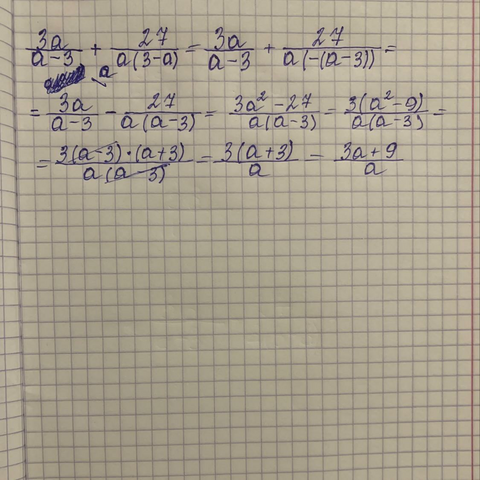 3a/(a-3) + 27/(a(3-a)) = 3a/(a-3) + 27/(a(-(a-3))) =
= 3a/(a-3) - 27/(a(a-3)) = (3a²-27)/(a(a-3)) = 3(a²-9)/(a(a-3)) =
= 3(a-3)·(a+3)/(a(a-3)) = 3(a+3)/a = (3a+9)/a